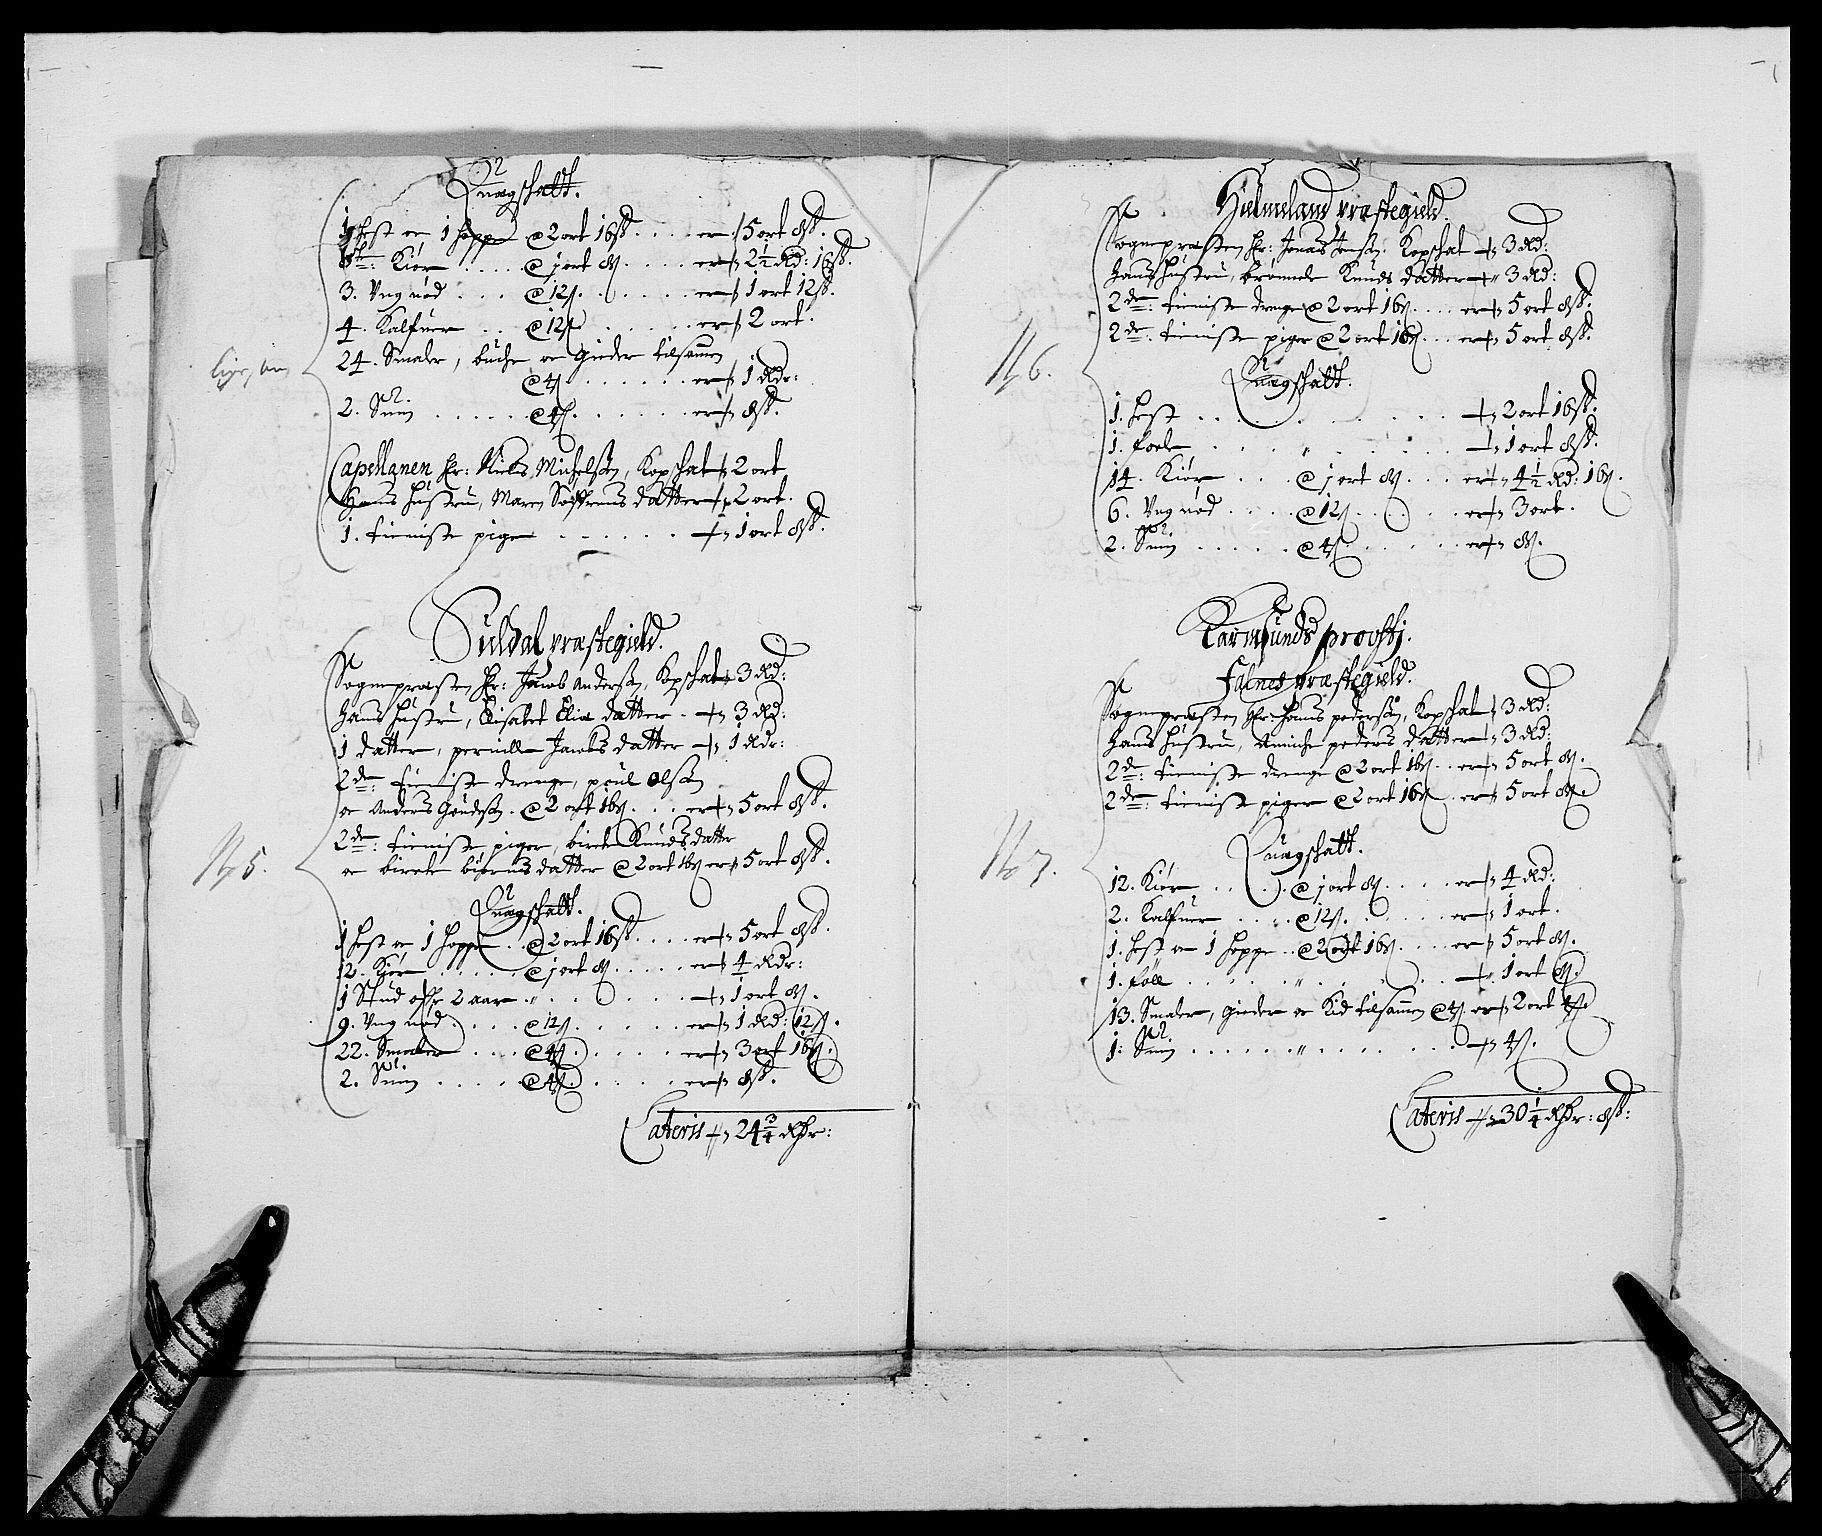 Quægschatt.
1 Hest oc 1 hoppe @ 2 ort 16ß .... er 5 ort 8ß.
Kiör .... @ 1 ort 8ß .... er 2½ Rd: 16ß.
3. Ung nød ... @ 12ß .... er 1 ort 12ß.
4. Kalfuer .. @ 12ß .... er 2 ort.
24. Smaler, buche oc gieder tilsamen
@ 4ß ...... er 1 Rdr:
2. Suin ...... @ 4ß ...... er 8ß.
Capellanen Hr: Niels Michelsøn, Kopschat 2 ort
Hans hüstru, Maren Søffrens datter 2 ort.
1. tieniste pige ...... 1 ort 8ß.
Suldal præstegield.
Sognepræsten Hr: Jacob Andersøn, Kopschat 3 Rd:
Hans hüstru, Elisabet Eliæ datter . 3 Rd:
1 datter, pernille Jacobs datter 1 Rdr:
2de: tieniste drenge, poul Olsøn
oc Anders . @ 2 ort 16ß ... er 5 ort 8ß.
No 5.
2de: tieniste piger, birete Knuds datter
oc birete biørns datter @ 2 ort 16ß er 5 ort 8ß.
Quægschatt.
1 hest oc 1 hoppe .. @ 2 ort 16ß .... er 5 ort 8ß.
12. Kiör ..... @ 1 ort 8ß ..... er 4 Rdr:
1 Stud offr 2 aar .. 1 ort 8ß.
9. Ung nød .... @ 12ß ...... er 1 Rd: 12ß.
22. Smaler ... @ 4ß ..... er 3 ort 16ß.
2. Suin ..... @ 4ß ..... er 8ß.
Lateris 24¾ Rdr:
Hielmeland præstegield.
Sognepræsten Hr: Jonas Jensøn Kopschat 3 Rd:
Hans hüstru, Knuds datter 3 Rd:
2de: tieniste drenge @ 2 ort 16ß .... er 5 ort 8ß.
2de: tieniste piger @ 2 ort 16ß ... er 5 ort 8ß.
No 6.
Quægschatt.
1. hest ......... 2 ort 16ß.
1. foele ......... 1 ort 8ß.
14. Kiör ... @ 1 ort 8ß ... er 4½ Rd: 16ß.
6. Ung nød .... @ 12ß .... er 3 ort.
2. Suin ..... @ 4ß ..... er 8ß.
Karmsunds provsti.
Falnes præstegield.
Sognepræsten Hr: Hans pedersøn, Kopschat 3 Rd:
Hans hüstru, peders datter 3 Rd:
2de: tieniste drenge @ 2 ort 16ß .. er 5 ort 8ß.
2de: tieniste piger @ 2 ort 16ß . er 5 ort 8ß.
No 7.
Quægschatt.
12. Kiör .... @ 1 ort 8ß .... er 4 Rd:
2. Kalfuer .... @ 12ß ...... er 1 ort.
1. hest oc 1 hoppe .. @ 2 ort 16ß .... er 5 ort 8ß.
1. föll ......... 1 ort 8ß.
13. Smaler, gieder oc Kid tilsamen @ 4ß er 2 ort 4ß
1. Suin ......... 4ß.
Lateris 30¼ Rdr: 8ß: